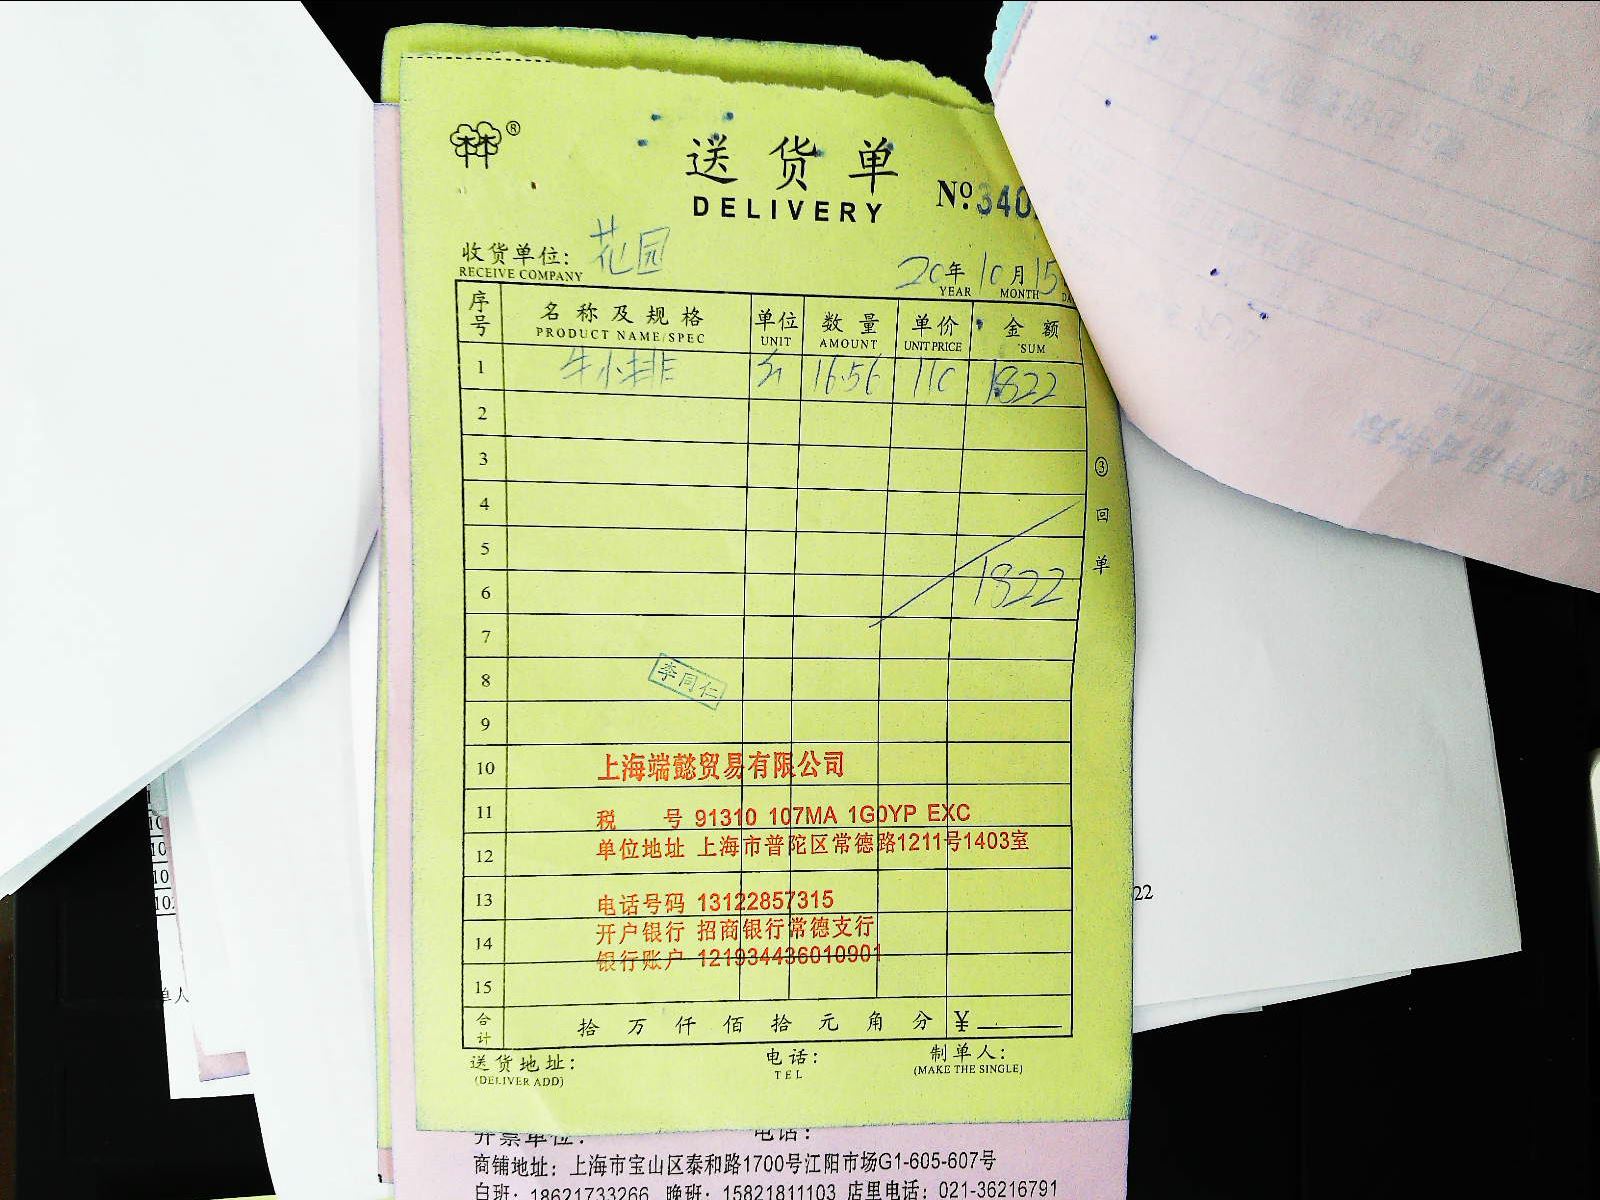 林林®
送货单
DELIVERY
№:340
收货单位: 花园
RECEIVE COMPANY
20年10月15
YEAR MONTH DA
序号 名称及规格 单位 数量 单价 金额
PRODUCT NAME/SPEC UNIT AMOUNT UNIT PRICE SUM
1 牛小排 16.56 110 1822
2
3
4
5
6 1822
7
8 李同仁
9
10 上海端懿贸易有限公司
11 税 号 91310 107MA 1G0YP EXC
12 单位地址 上海市普陀区常德路1211号1403室
13 电话号码 13122857315
14 开户银行 招商银行常德支行
银行账户 121934436010901
15
合计 拾 万 仟 佰 拾 元 角 分 ¥
送货地址: 电话: 制单人:
(DELIVER ADD) TEL (MAKE THE SINGLE)
③回单
开票单位: 电话:
商铺地址: 上海市宝山区泰和路1700号江阳市场G1-605-607号
白班: 18621733266 晚班: 15821811103 店里电话: 021-36216791
10
10
10
单人
22